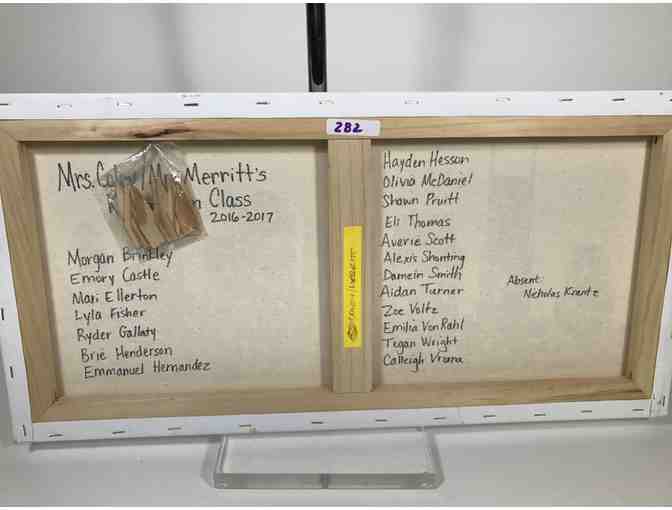 282
Mrs. Merritt's
Class
2016-2017
Morgan Brinkley
Emory Castle
Mari Ellerton
Lyla Fisher
Ryder Gallaty
Brie Henderson
Emmanuel Hernandez
Hayden Hesson
Olivia McDaniel
Shawn Pruitt
Eli Thomas
Averie Scott
Alexis Shonting
Damein Smith
Aidan Turner
Zoe Voltz
Emilia Von Rahl
Tegan Wright
Calleigh Vroma
Absent:
Nicholas Krantz